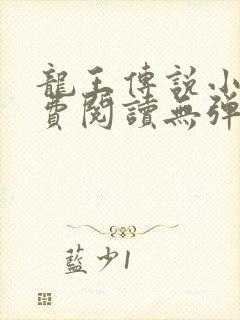 龍王傳說小
費閱讀無彈
藍少1